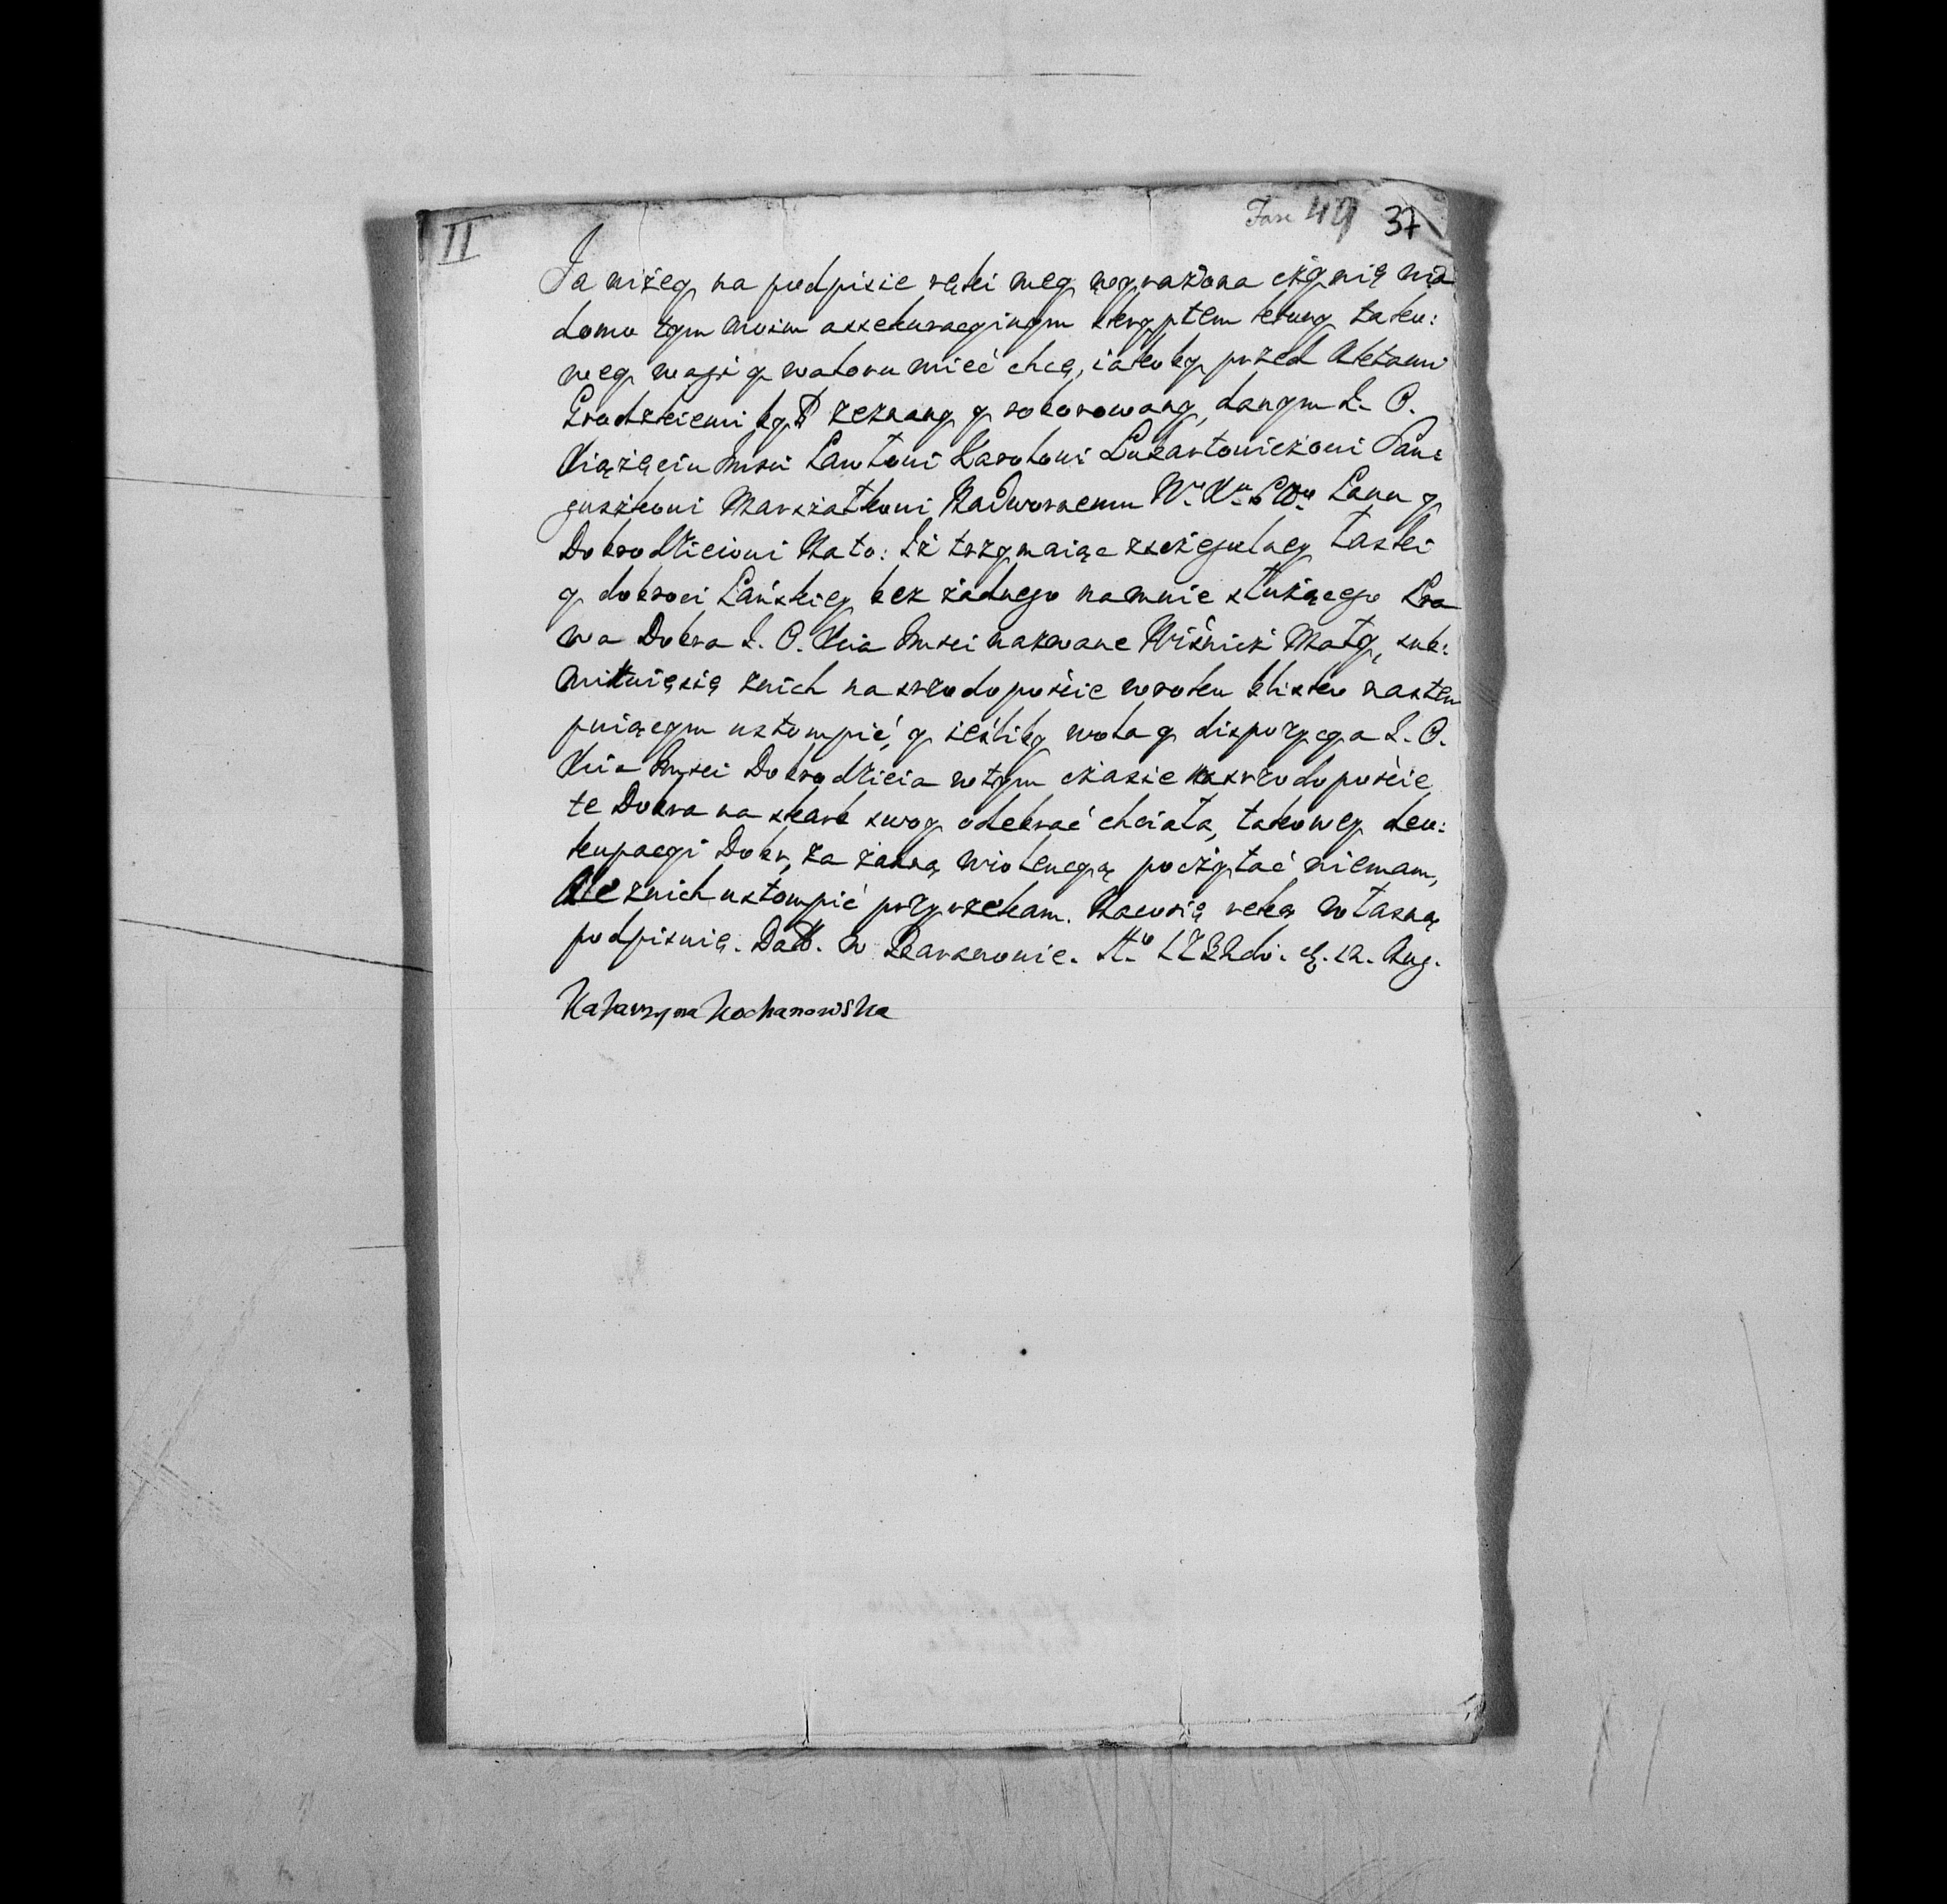 II
Fasc 49 37
Ja niżey na podpisie ręki mey wyrażona czynię wia
domo tym moim assekuracyinym skryptem który tako:
wey wagi y waloru mieć chcę, iakoby przed Aktami
Grodzkiemi był zeznany y roborowany, danym J. O.
Xiążęciu Jmsci Pawłowi Karolowi Lubartowiczowi San:
guszkowi Marszałkowi Nadwornemu W. X. Lttu Panu y
Dobrodzieiowi Na to: Iż trzymaiąc zszczegulney łaski
y dobroci Pańskiey bez żadnego na mnie służącego Pra
wa Dobra J. O. Xcia Jmsci nazwane Wiśnicz Mały, sub:
mittuięsię znich na srzodoposcie wroku blisko nastem
puiącym ustompić, y ieśliby wola y dispozycya J. O.
Xcia Jmsci Dobrodzieia wtym czasie na srzodoposcie
te Dobra na skarb swoy odebrać chciała, takowey deu:
kupacyi Dobr, za żadną wiolencyą poczytać niemam,
Ale znich ustompić przyrzekam. Nacosię ręką własną
podpisuię. Datt. w Baranowie. Ao 1732do. d. 12. Aug.
Katarzyna Kochanowska